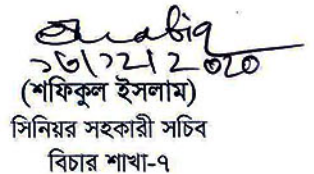 ১৩/১২/২০২০
(শফিকুল ইসলাম)
সিনিয়র সহকারী সচিব
বিচার শাখা-৭